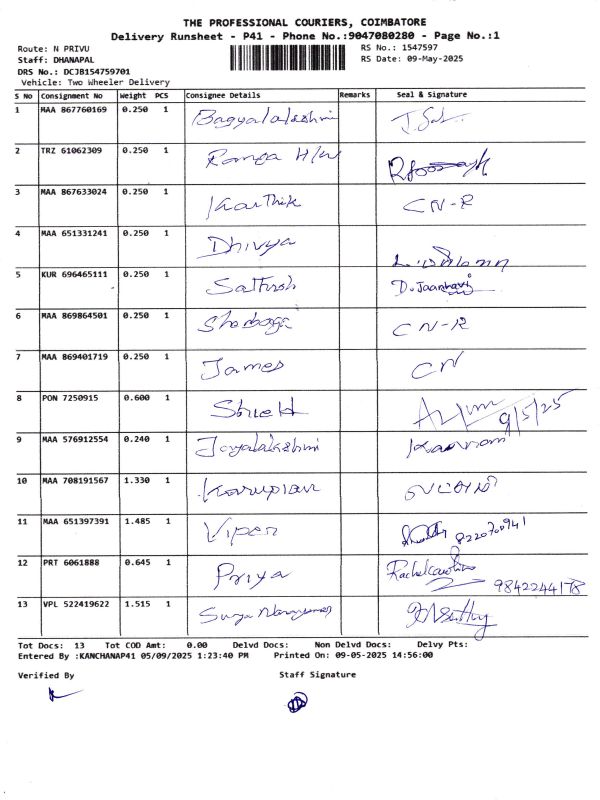 THE PROFESSIONAL COURIERS, COIMBATORE
Delivery Runsheet - P41 - Phone No.:9047080280 - Page No.:1
Route: N PRIVU RS No.: 1547597
Staff: DHANAPAL RS Date: 09-May-2025
DRS No.: DCJB154759701
Vehicle: Two Wheeler Delivery
S No Consignment No Weight PCS Consignee Details Remarks Seal & Signature
1 MAA 867760169 0.250 1 Bagyalalashmi
2 TRZ 61062309 0.250 1 Ranga H/W
3 MAA 867633024 0.250 1 Karthik CN-R
4 MAA 651331241 0.250 1 Dhivya
5 KUR 696465111 0.250 1 Sathish D. Jaanhavi
6 MAA 869864501 0.250 1 CN-R
7 MAA 869401719 0.250 1 James CN
8 PON 7250915 0.600 1 9/5/25
9 MAA 576912554 0.240 1 Jeyalakshmi
10 MAA 708191567 1.330 1
11 MAA 651397391 1.485 1 Vipen 8220700941
12 PRT 6061888 0.645 1 Priya 9842244178
13 VPL 522419622 1.515 1
Tot Docs: 13 Tot COD Amt: 0.00 Delvd Docs: Non Delvd Docs: Delvy Pts:
Entered By :KANCHANAP41 05/09/2025 1:23:40 PM Printed On: 09-05-2025 14:56:00
Verified By Staff Signature